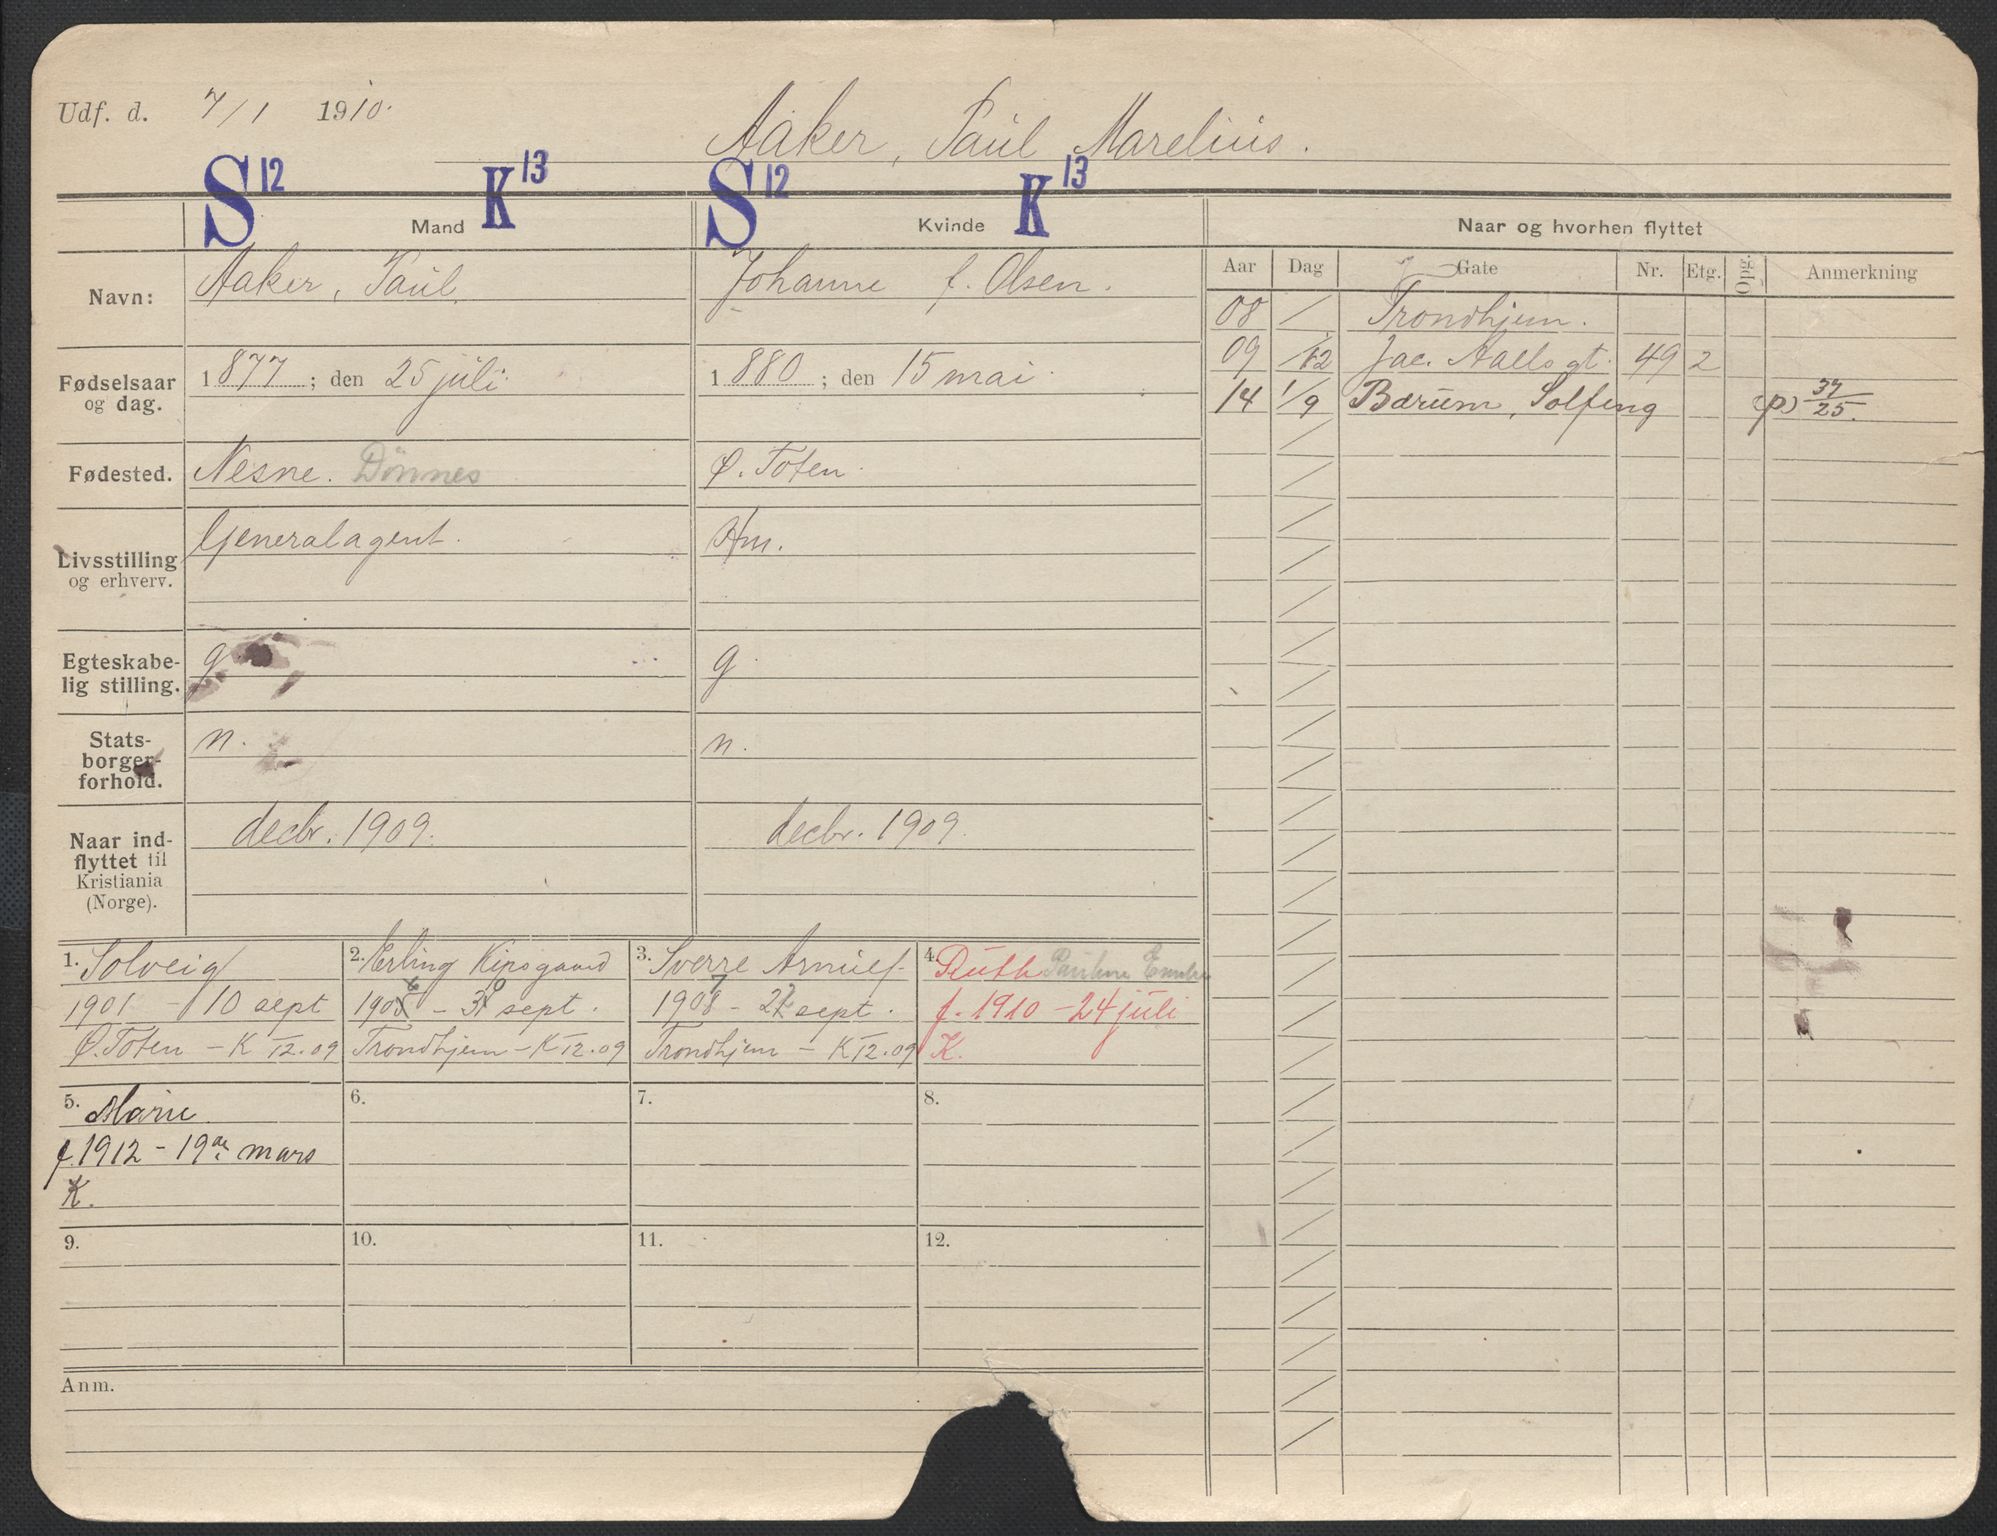 Udf. d. 7/1 1910.
Aaker, Paul Marelius.
S 12 K 13 S 12 K 13
Mand Kvinde Naar og hvorhen flyttet
Aar Dag Gate Nr. Etg. Opg. Anmerkning
Navn: Aaker, Paul. Johanne f. Olsen.
08 / Trondhjem.
09 /12 Jac. Aalls gt. 49 2
14 1/9 Bærum, Solfeng (p) 37/25.
Fødselsaar og dag. 1877; den 25 juli. 1880; den 15 mai.
Fødested. Nesne. Dønnes Ø. Toten.
Livsstilling og erhverv. Generalagent. Hm.
Egteskabe-
lig stilling. g. g.
Stats-
borger-
forhold. n. n.
Naar ind-
flyttet til
Kristiania
(Norge). decbr. 1909. decbr. 1909.
1. Solveig
1901 - 10 sept
Ø. Toten - K 12.09
2. Erling
1906 - 30 sept.
Trondhjem - K 12.09
3. Sverre Arnulf
1907 - 27 sept.
Trondhjem - K 12.09
4. Ruth
f. 1910 - 24 juli
K.
5. Marie
f. 1912 - 19de mars
K.
6.
7.
8.
9.
10.
11.
12.
Anm.